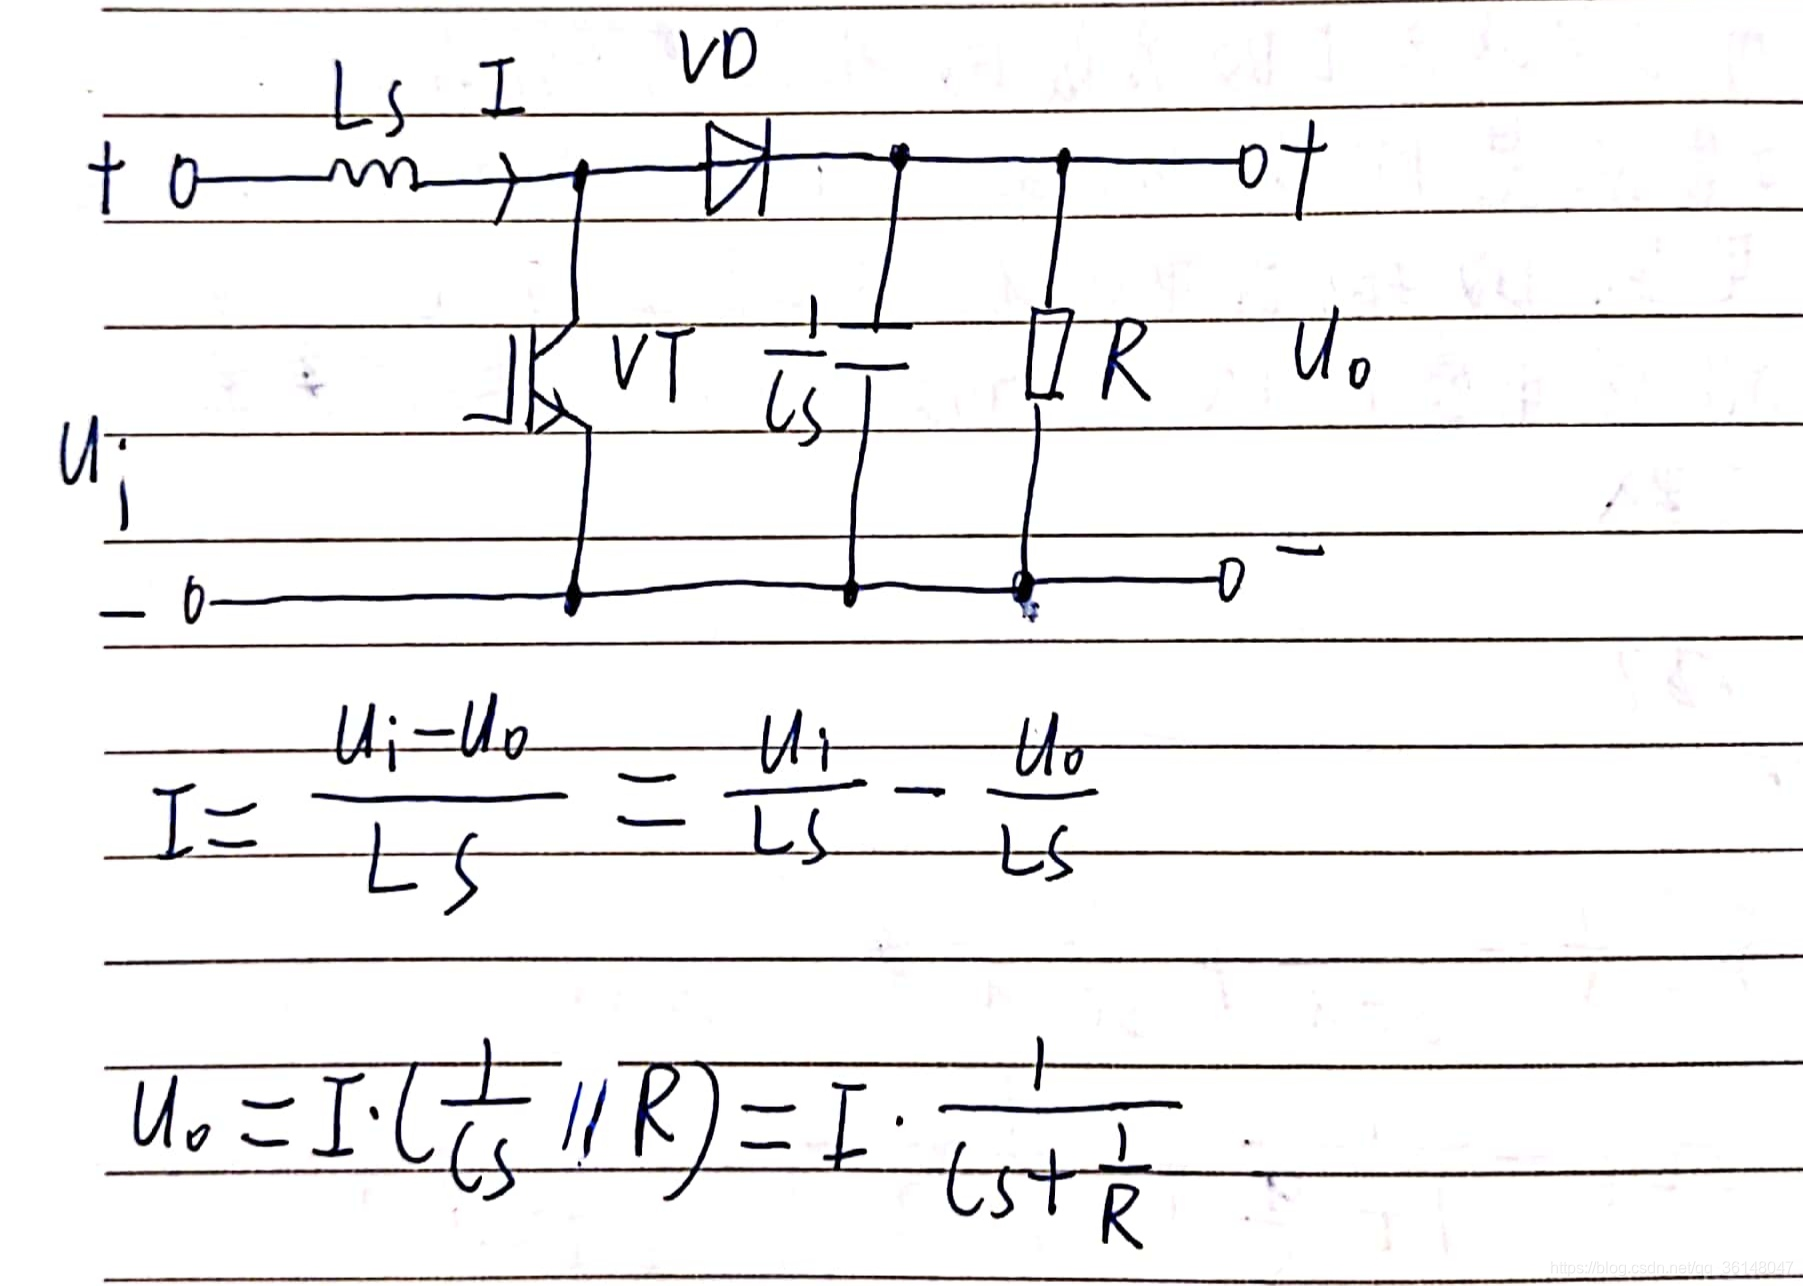 VD
Ls I
+ +
VT 1/Cs R Uo
Ui
- -
I = (Ui - Uo)/Ls = Ui/Ls - Uo/Ls
Uo = I · (1/Cs // R) = I · 1/(Cs + 1/R)
https://blog.csdn.net/qq_36148047